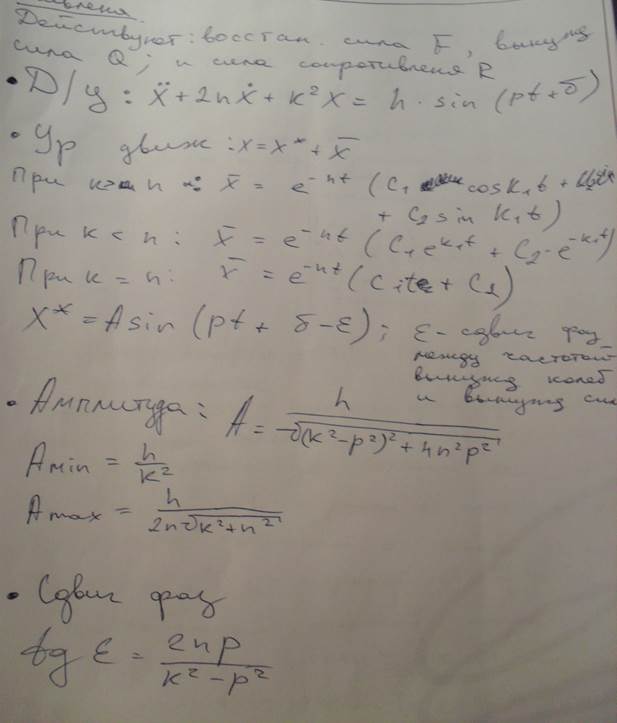 Действуют: восстан. сила F, вынужд
сила Q; и сила сопротивления R
• Д/у: ẍ + 2nẋ + k²x = h · sin (pt + δ)
• Ур движ: x = x* + x̄
При k > n: x̄ = e^-nt (C₁ cos k₁t +
+ C₂ sin k₁t)
При k < n: x̄ = e^-nt (C₁e^k₁t + C₂·e^-k₁t)
При k = n: x̄ = e^-nt (C₁t + C₂)
x* = A sin (pt + δ - ε); ε - сдвиг фаз
между частотой
вынужд колеб
и вынужд сил
• Амплитуда: A = h / √((k² - p²)² + 4n²p²)
Amin = h / k²
Amax = h / 2n√(k² + n²)
• Сдвиг фаз
tg ε = 2np / k² - p²